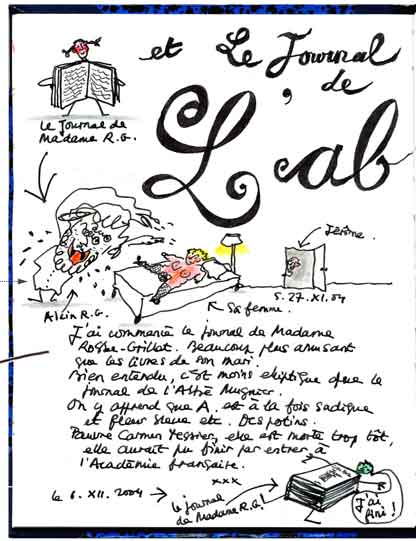 et Le Journal
de
L'ab
Le Journal de
Madame R.G.
Jérôme.
Alain R.G.
Sa femme.
S. 27. XI. 04
J'ai commencé le journal de Madame
Robbe-Grillet. Beaucoup plus amusant
que les livres de son mari.
Bien entendu, c'est moins elliptique que le
journal de l'Abbé Mugnier.
On y apprend que A. est à la fois sadique
et fleur bleue etc. Des potins.
Pauvre Carmen Tessier, elle est morte trop tôt,
elle aurait pu finir par entrer à
l'Académie française.
xxx
le 6. XII. 2004
le journal
de Madame R.G!
J'ai
fini!